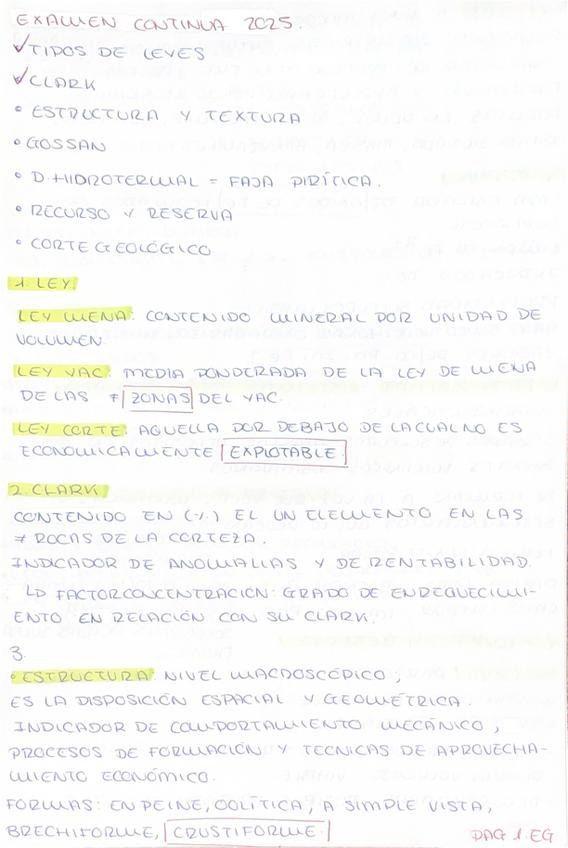 EXAMEN CONTINUA 2025.
✓TIPOS DE LEYES
✓CLARK
• ESTRUCTURA Y TEXTURA
• GOSSAN
• D. HIDROTERMAL = FAJA PIRÍTICA.
• RECURSO Y RESERVA
• CORTE GEOLÓGICO
1. LEY.
LEY MENA: CONTENIDO MINERAL POR UNIDAD DE
VOLUMEN.
LEY YAC: MEDIA PONDERADA DE LA LEY DE MENA
DE LAS ≠ ZONAS DEL YAC.
LEY CORTE: AQUELLA POR DEBAJO DE LA CUAL NO ES
ECONOMICAMENTE EXPLOTABLE.
2. CLARK
CONTENIDO EN (%) EL UN ELEMENTO EN LAS
≠ ROCAS DE LA CORTEZA.
INDICADOR DE ANOMALIAS Y DE RENTABILIDAD.
↳ FACTOR CONCENTRACIÓN: GRADO DE ENREQUECIMI-
ENTO EN RELACIÓN CON SU CLARK.
3.
• ESTRUCTURA: NIVEL MACROSCÓPICO,
ES LA DISPOSICIÓN ESPACIAL Y GEOMÉTRICA.
INDICADOR DE COMPORTAMIENTO MECÁNICO,
PROCESOS DE FORMACIÓN Y TECNICAS DE APROVECHA-
MIENTO ECONÓMICO.
FORMAS: EN PEINE, OOLÍTICA, A SIMPLE VISTA,
BRECHIFORME, CRUSTIFORME.
PAG 1. EG